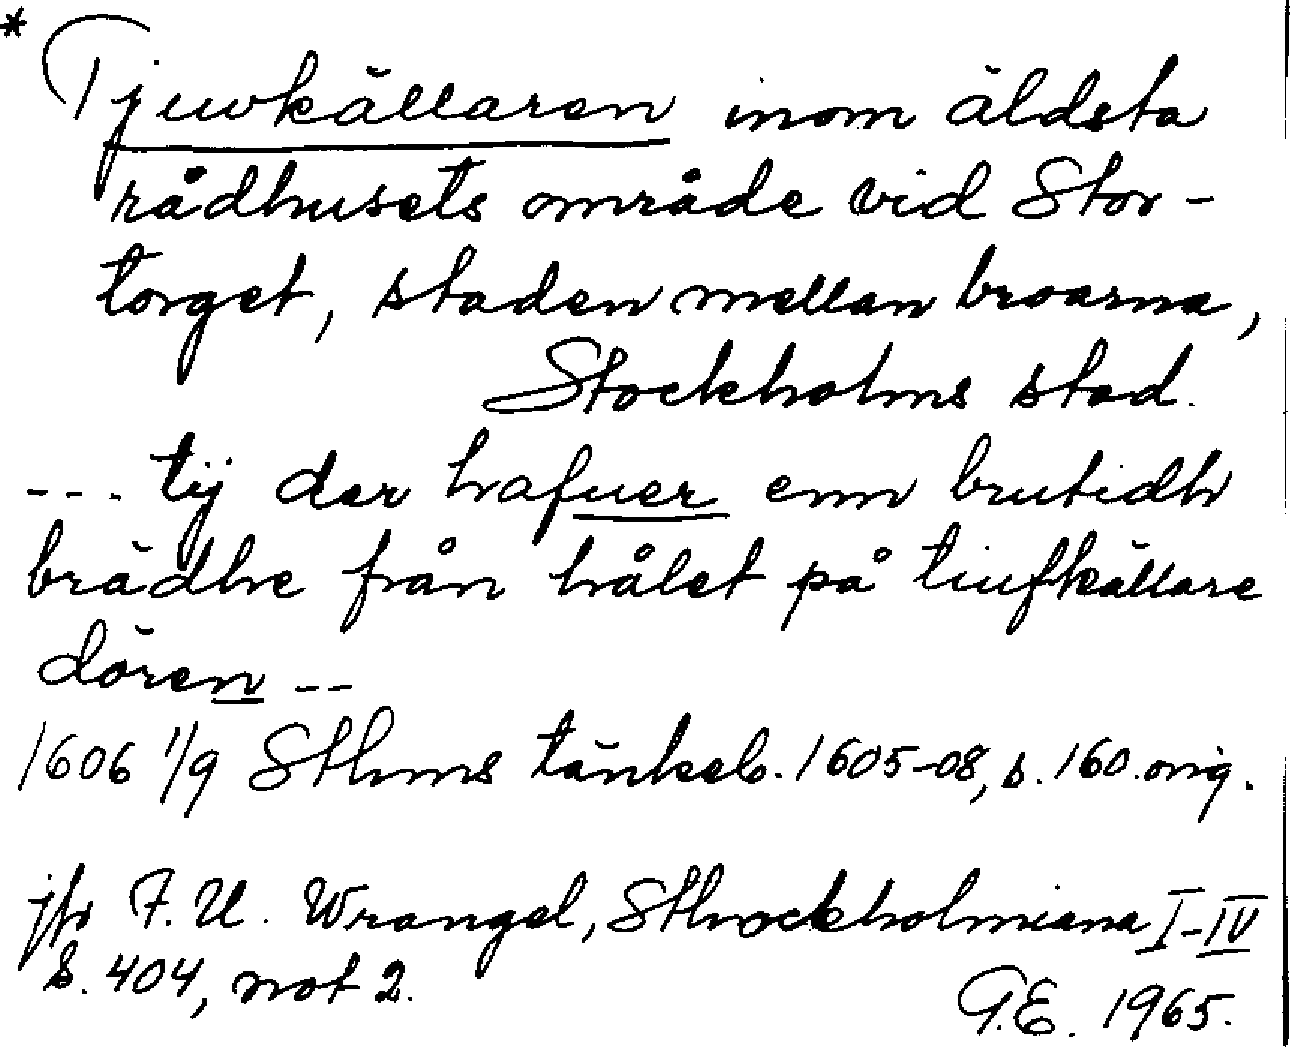 * Tjuvkällaren inom äldsta
rådhusets område vid Stor-
torget, staden mellan broarna,
Stockholms stad.
--- tÿ der hafuer enn brutidh
brädhe från hålet på tiufkällare
dören --
1606 1/9 Sthms tänkeb. 1605-08, s. 160. orig.
jfr F. U. Wrangel, Sthockholmiana I-IV
s. 404, not 2.
G.E. 1965.